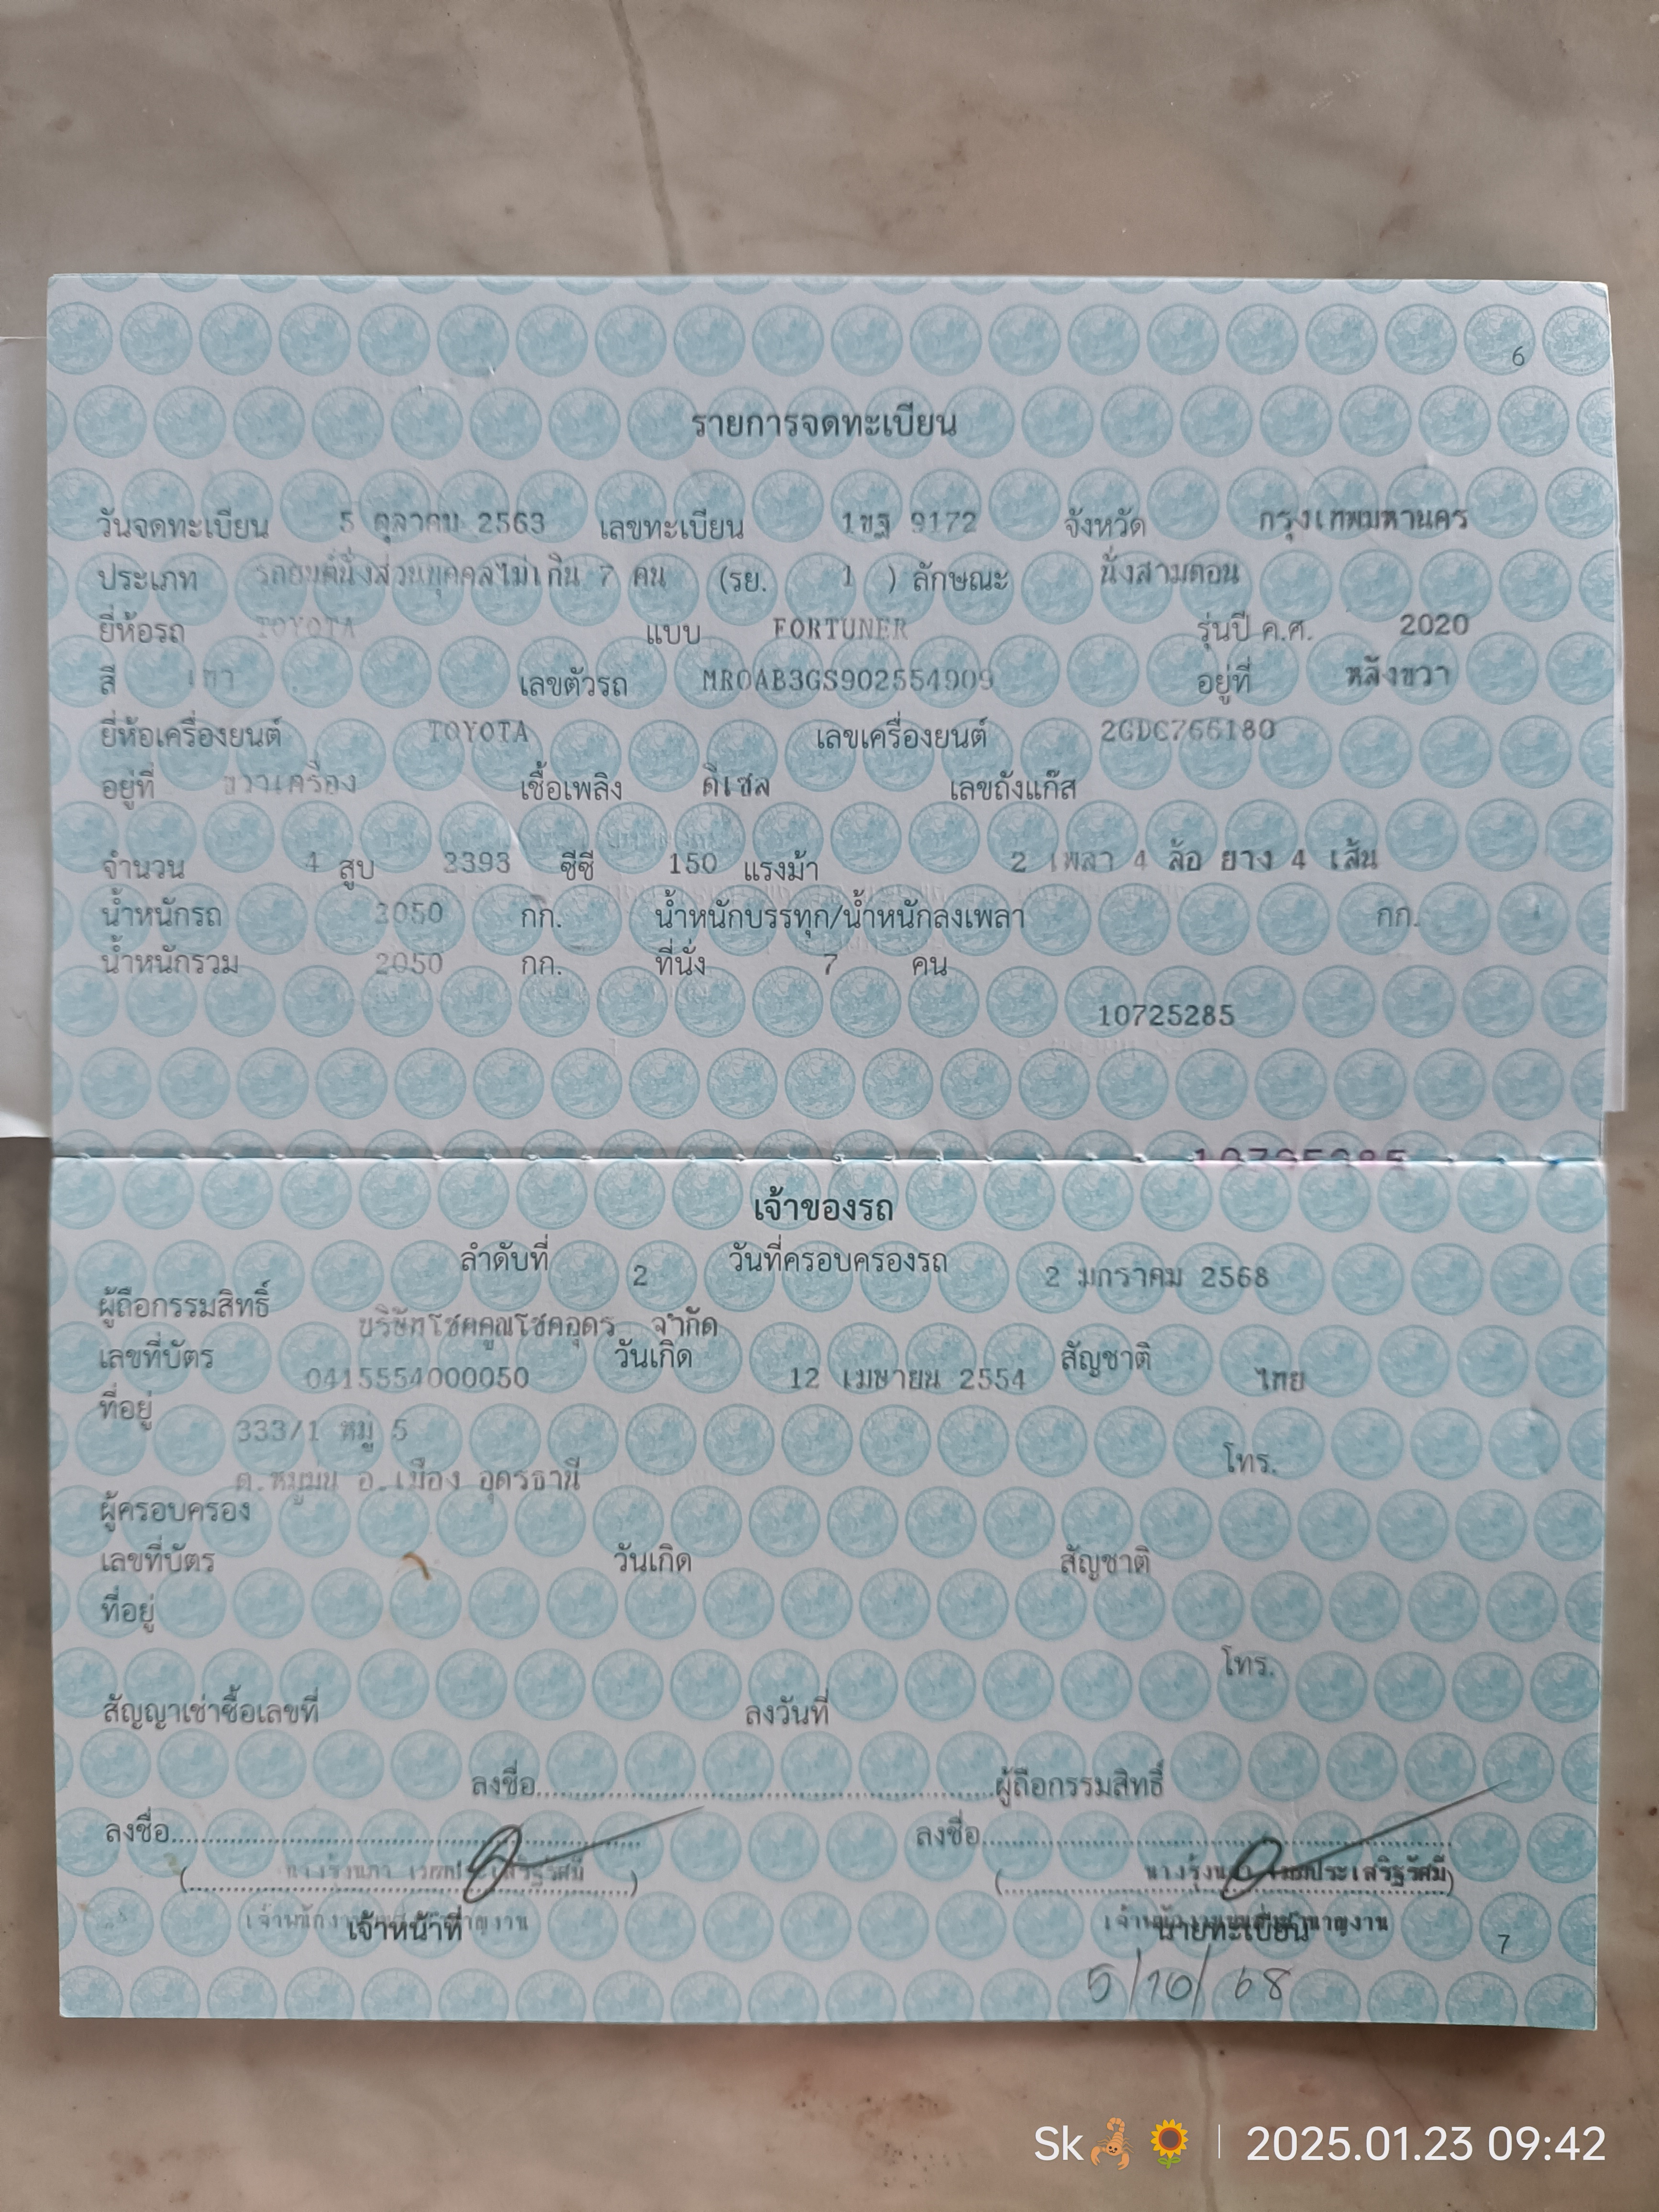 6
รายการจดทะเบียน
วันจดทะเบียน 5 ตุลาคม 2563 เลขทะเบียน 1ขฐ 9172 จังหวัด กรุงเทพมหานคร
ประเภท รถยนต์นั่งส่วนบุคคลไม่เกิน 7 คน (รย. 1 ) ลักษณะ นั่งสามตอน
ยี่ห้อรถ TOYOTA แบบ FORTUNER รุ่นปี ค.ศ. 2020
สี เทา เลขตัวรถ MR0AB3GS902554909 อยู่ที่ หลังขวา
ยี่ห้อเครื่องยนต์ TOYOTA เลขเครื่องยนต์ 2GDC766180
อยู่ที่ ขวาเครื่อง เชื้อเพลิง ดีเซล เลขถังแก๊ส
จำนวน 4 สูบ 2393 ซีซี 150 แรงม้า 2 เพลา 4 ล้อ ยาง 4 เส้น
น้ำหนักรถ 2050 กก. น้ำหนักบรรทุก/น้ำหนักลงเพลา กก.
น้ำหนักรวม 2050 กก. ที่นั่ง 7 คน
10725285
10725285
เจ้าของรถ
ลำดับที่ 2 วันที่ครอบครองรถ 2 มกราคม 2568
ผู้ถือกรรมสิทธิ์ บริษัทโชคคูณโชคอุดร จำกัด
เลขที่บัตร 0415554000050 วันเกิด 12 เมษายน 2554 สัญชาติ ไทย
ที่อยู่ 333/1 หมู่ 5
ต.หมูม่น อ.เมือง อุดรธานี โทร.
ผู้ครอบครอง
เลขที่บัตร วันเกิด สัญชาติ
ที่อยู่
โทร.
สัญญาเช่าซื้อเลขที่ ลงวันที่
ลงชื่อ ผู้ถือกรรมสิทธิ์
ลงชื่อ ลงชื่อ
เจ้าหน้าที่ นายทะเบียน
7
5/10/68
Sk🦂🌻 | 2025.01.23 09:42